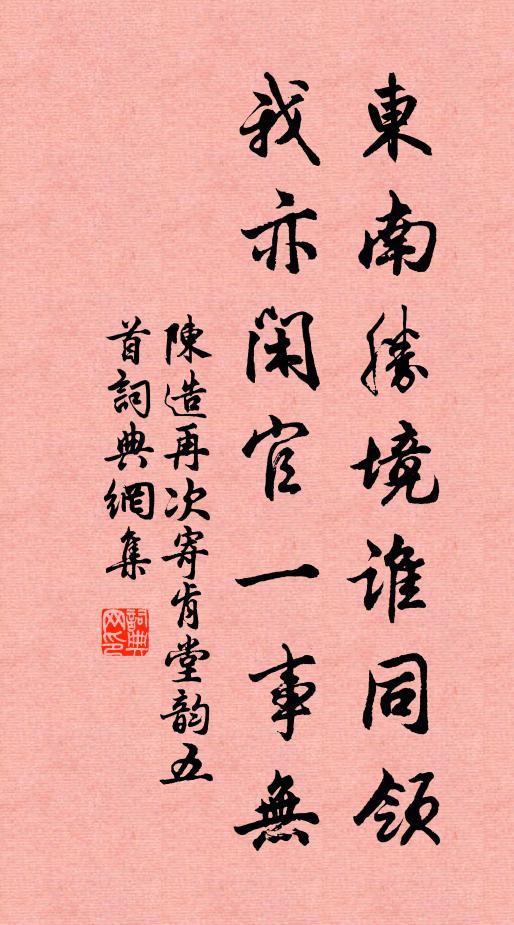 東南勝境誰同領
我亦閑官一事無
陳造再次寄肯堂韵五
首詞典網集
詞典網印